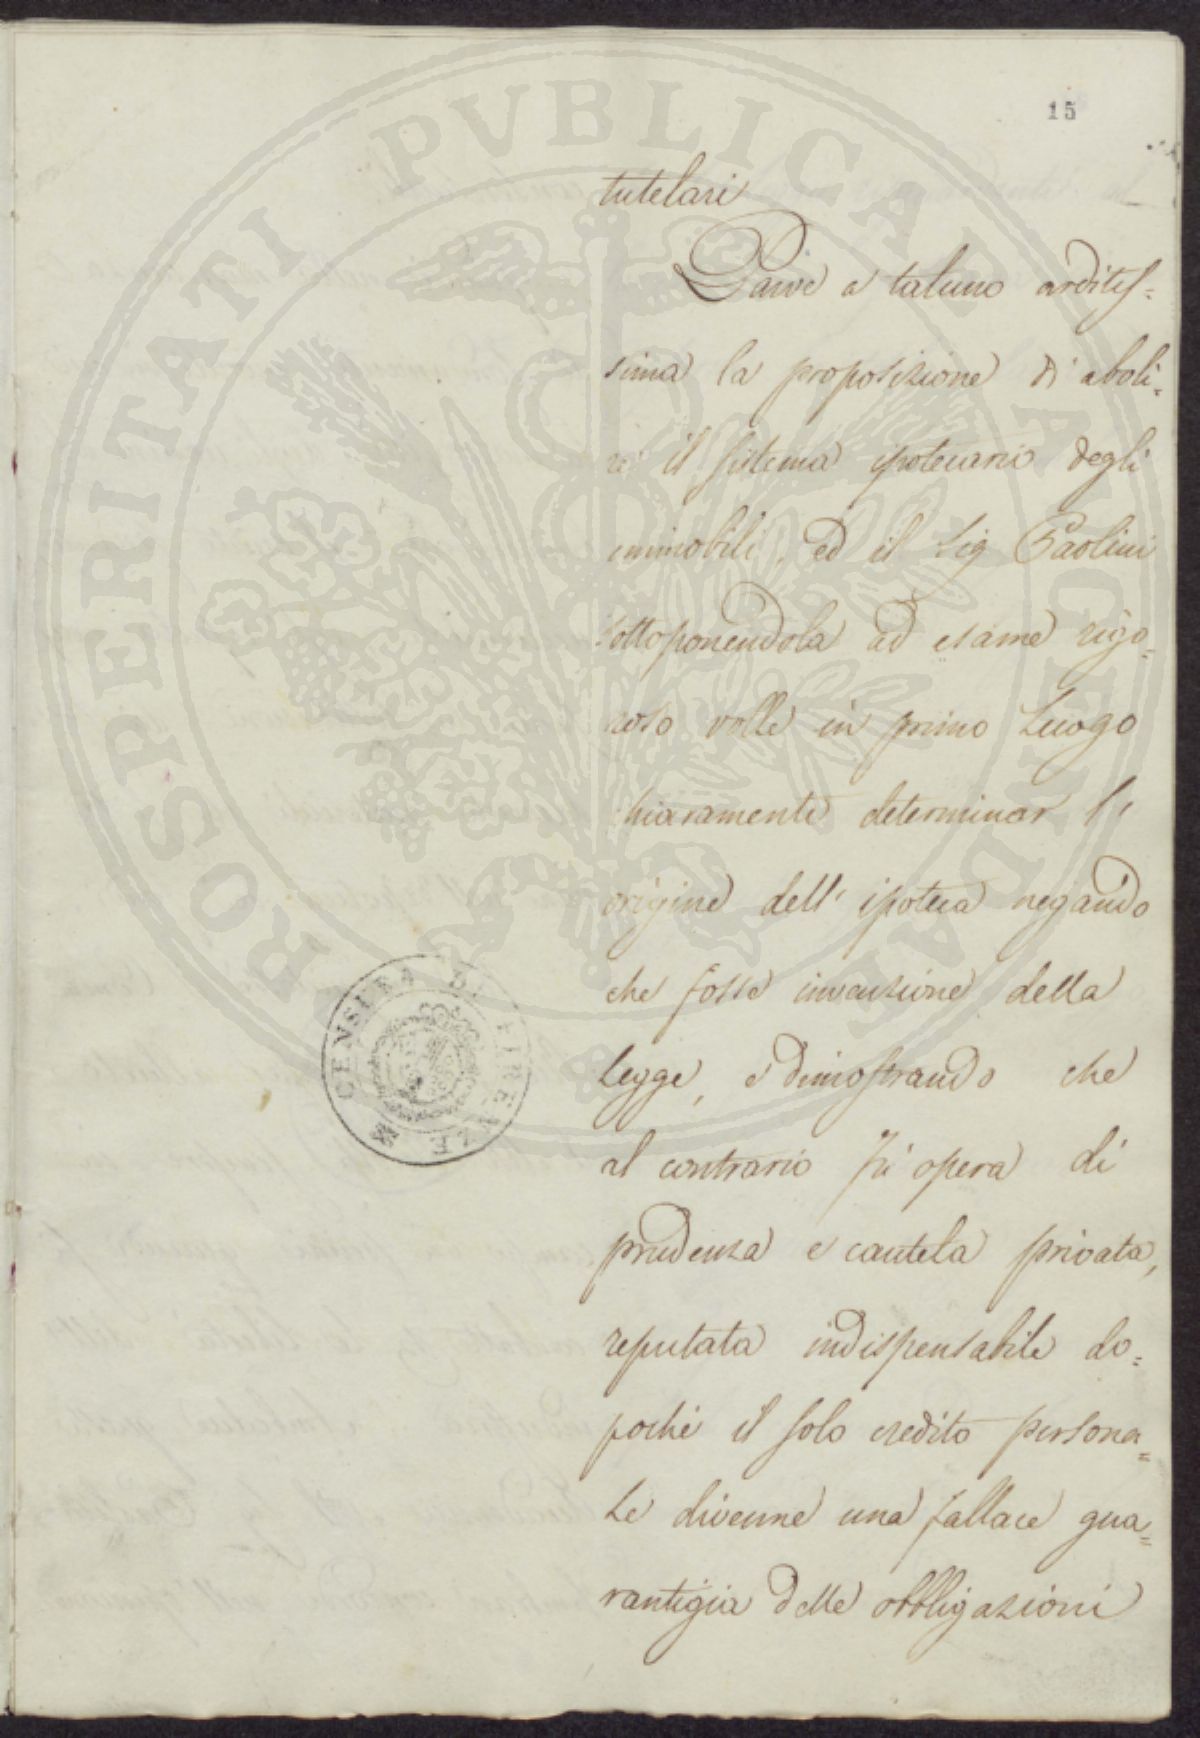 15
tutelari
Parve a taluno arditis=
sima la proposizione di aboli=
re il sistema ipotecario degli
immobili, ed il Sig Paolini
sottoponendola ad esame rigo=
roso volle in primo luogo
chiaramente determinar l'
origine dell' ipoteca negando
che fosse invenzione della
legge, e dimostrando che
al contrario fu opera di
prudenza e cautela privata,
reputata indispensabile do=
poché il solo credito persona=
le divenne una fallace gua=
rantigia delle obbligazioni
CENSURA DI FIRENZE
PROSPERITATI PVBLICAE AVGENDAE